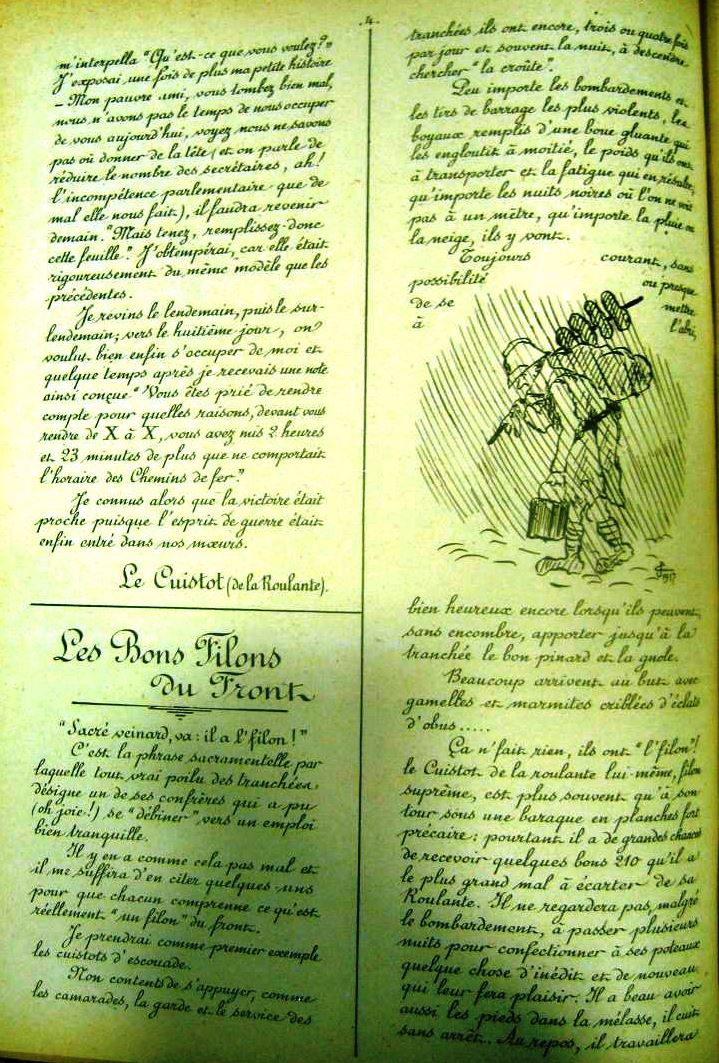 .4.
m'interpella "Qu'est-ce que vous voulez?"
J'exposai une fois de plus ma petite histoire
– Mon pauvre ami, vous tombez bien mal,
nous n'avons pas le temps de nous occuper
de vous aujourd'hui, voyez nous ne savons
pas où donner de la tête (et on parle de
réduire le nombre des secrétaires, ah!
l'incompétence parlementaire que de
mal elle nous fait), il faudra revenir
demain. "Mais tenez, remplissez donc
cette feuille." J'obtempérai, car elle était
rigoureusement du même modèle que les
précédentes.
Je revins le lendemain, puis le sur-
lendemain; vers le huitième jour, on
voulut bien enfin s'occuper de moi et
quelque temps après je recevais une note
ainsi conçue "Vous êtes prié de rendre
compte pour quelles raisons, devant vous
rendre de X à X, vous avez mis 2 heures
et 23 minutes de plus que ne comportait
l'horaire des Chemins de fer."
Je connus alors que la victoire était
proche puisque l'esprit de guerre était
enfin entré dans nos mœurs.
Le Cuistot (de la Roulante).
Les Bons Filons
du Front
"Sacré veinard, va: il a l'filon!"
C'est la phrase sacramentelle par
laquelle tout vrai poilu des tranchées
désigne un de ses confrères qui a pu
(oh joie!) se "débiner" vers un emploi
bien tranquille.
Il y en a comme cela pas mal et
il me suffira d'en citer quelques-uns
pour que chacun comprenne ce qu'est
réellement "un filon" du front.
Je prendrai comme premier exemple
les cuistots d'escouade.
Non contents de s'appuyer, comme
les camarades, la garde et le service des
tranchées ils ont encore, trois ou quatre fois
par jour et souvent la nuit, à descendre
chercher "la croûte".
Peu importe les bombardements et
les tirs de barrage les plus violents, les
boyaux remplis d'une boue gluante qui
les engloutit à moitié, le poids qu'ils ont
à transporter et la fatigue qui en résulte,
qu'importe les nuits noires où l'on ne voit
pas à un mètre, qu'importe la pluie ou
la neige, ils y vont.
Toujours courant, sans
possibilité ou presque
de se mettre
à l'abri,
1917
bien heureux encore lorsqu'ils peuvent,
sans encombre, apporter jusqu'à la
tranchée le bon pinard et la gnole.
Beaucoup arrivent au but avec
gamelles et marmites criblées d'éclats
d'obus.....
Ça n'fait rien, ils ont "l'filon"!
le Cuistot de la roulante lui-même, filon
suprême, est plus souvent qu'à son
tour sous une baraque en planches fort
précaire: pourtant il a de grandes chances
de recevoir quelques bons 210 qu'il a
le plus grand mal à écarter de sa
Roulante. Il ne regardera pas, malgré
le bombardement, à passer plusieurs
nuits pour confectionner à ses poteaux
quelque chose d'inédit et de nouveau
qui leur fera plaisir. Il a beau avoir
aussi les pieds dans la mélasse, il cuit
sans arrêt. Au repos, il travaillera